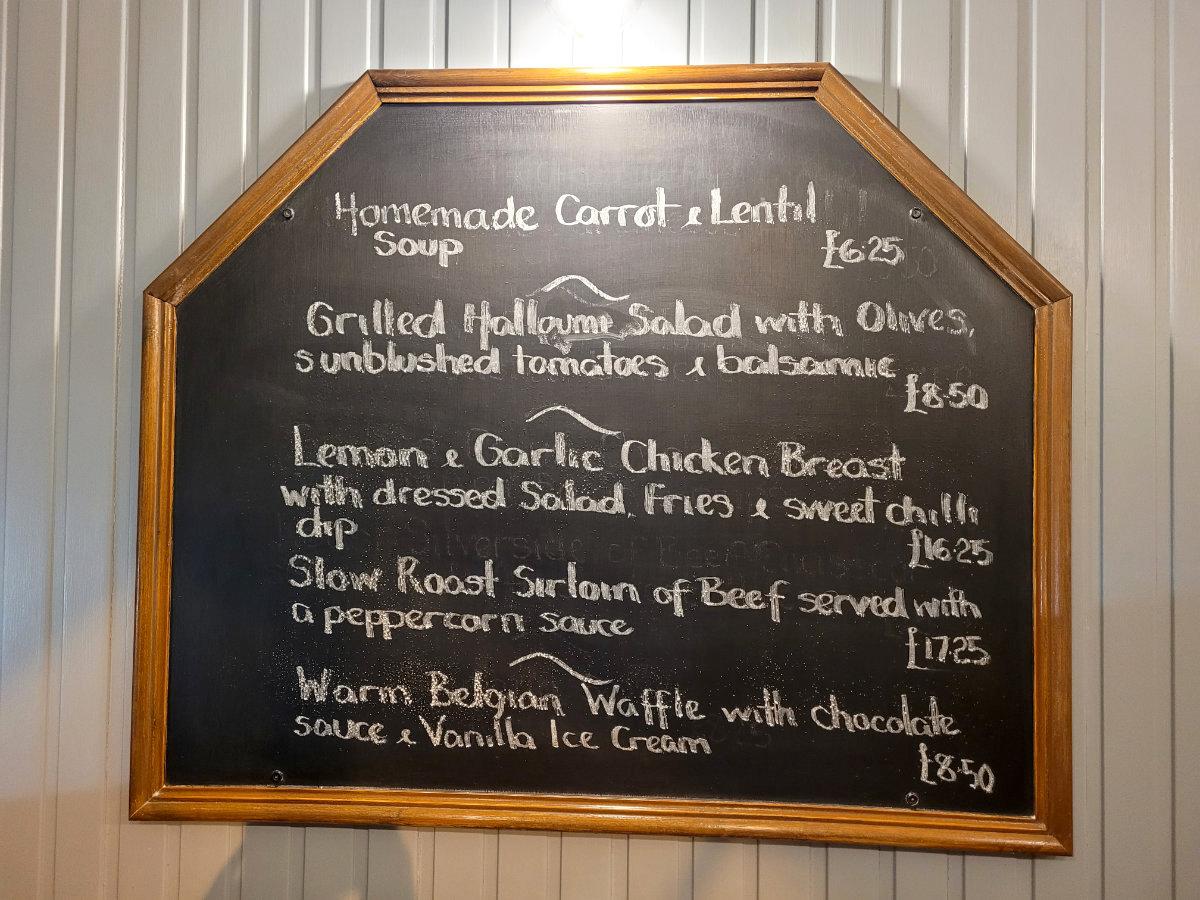 Homemade Carrot & Lentil
Soup
£6.25
Grilled Halloumi Salad with Olives,
sunblushed tomatoes & balsamic
£8.50
Lemon & Garlic Chicken Breast
with dressed Salad, Fries & sweet chilli
dip
£16.25
Slow Roast Sirloin of Beef served with
a peppercorn sauce
£17.25
Warm Belgian Waffle with chocolate
sauce & Vanilla Ice Cream
£8.50